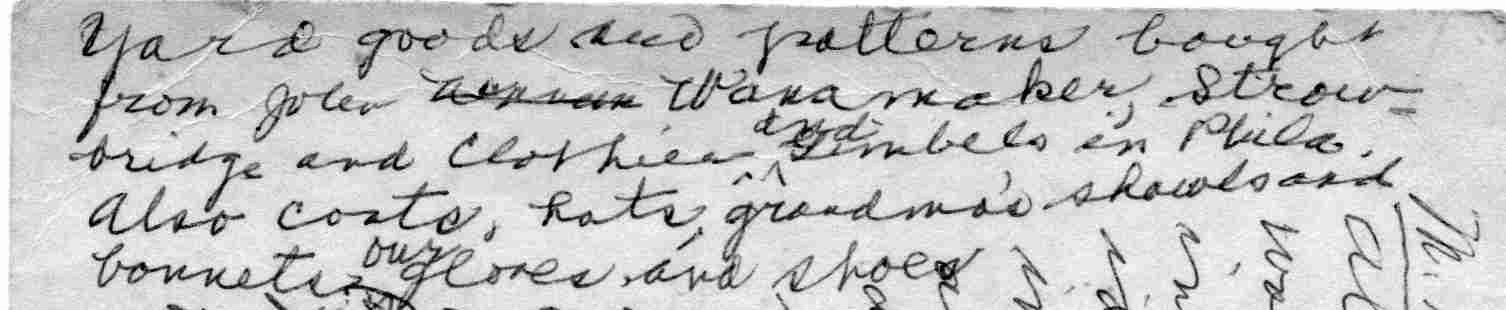 Yard goods and patterns bought
from John Wanamaker, Straw-
bridge and Clothier and Gimbels in Phila.
Also coats, hats, grandma's shawls and
bonnets, our gloves and shoes